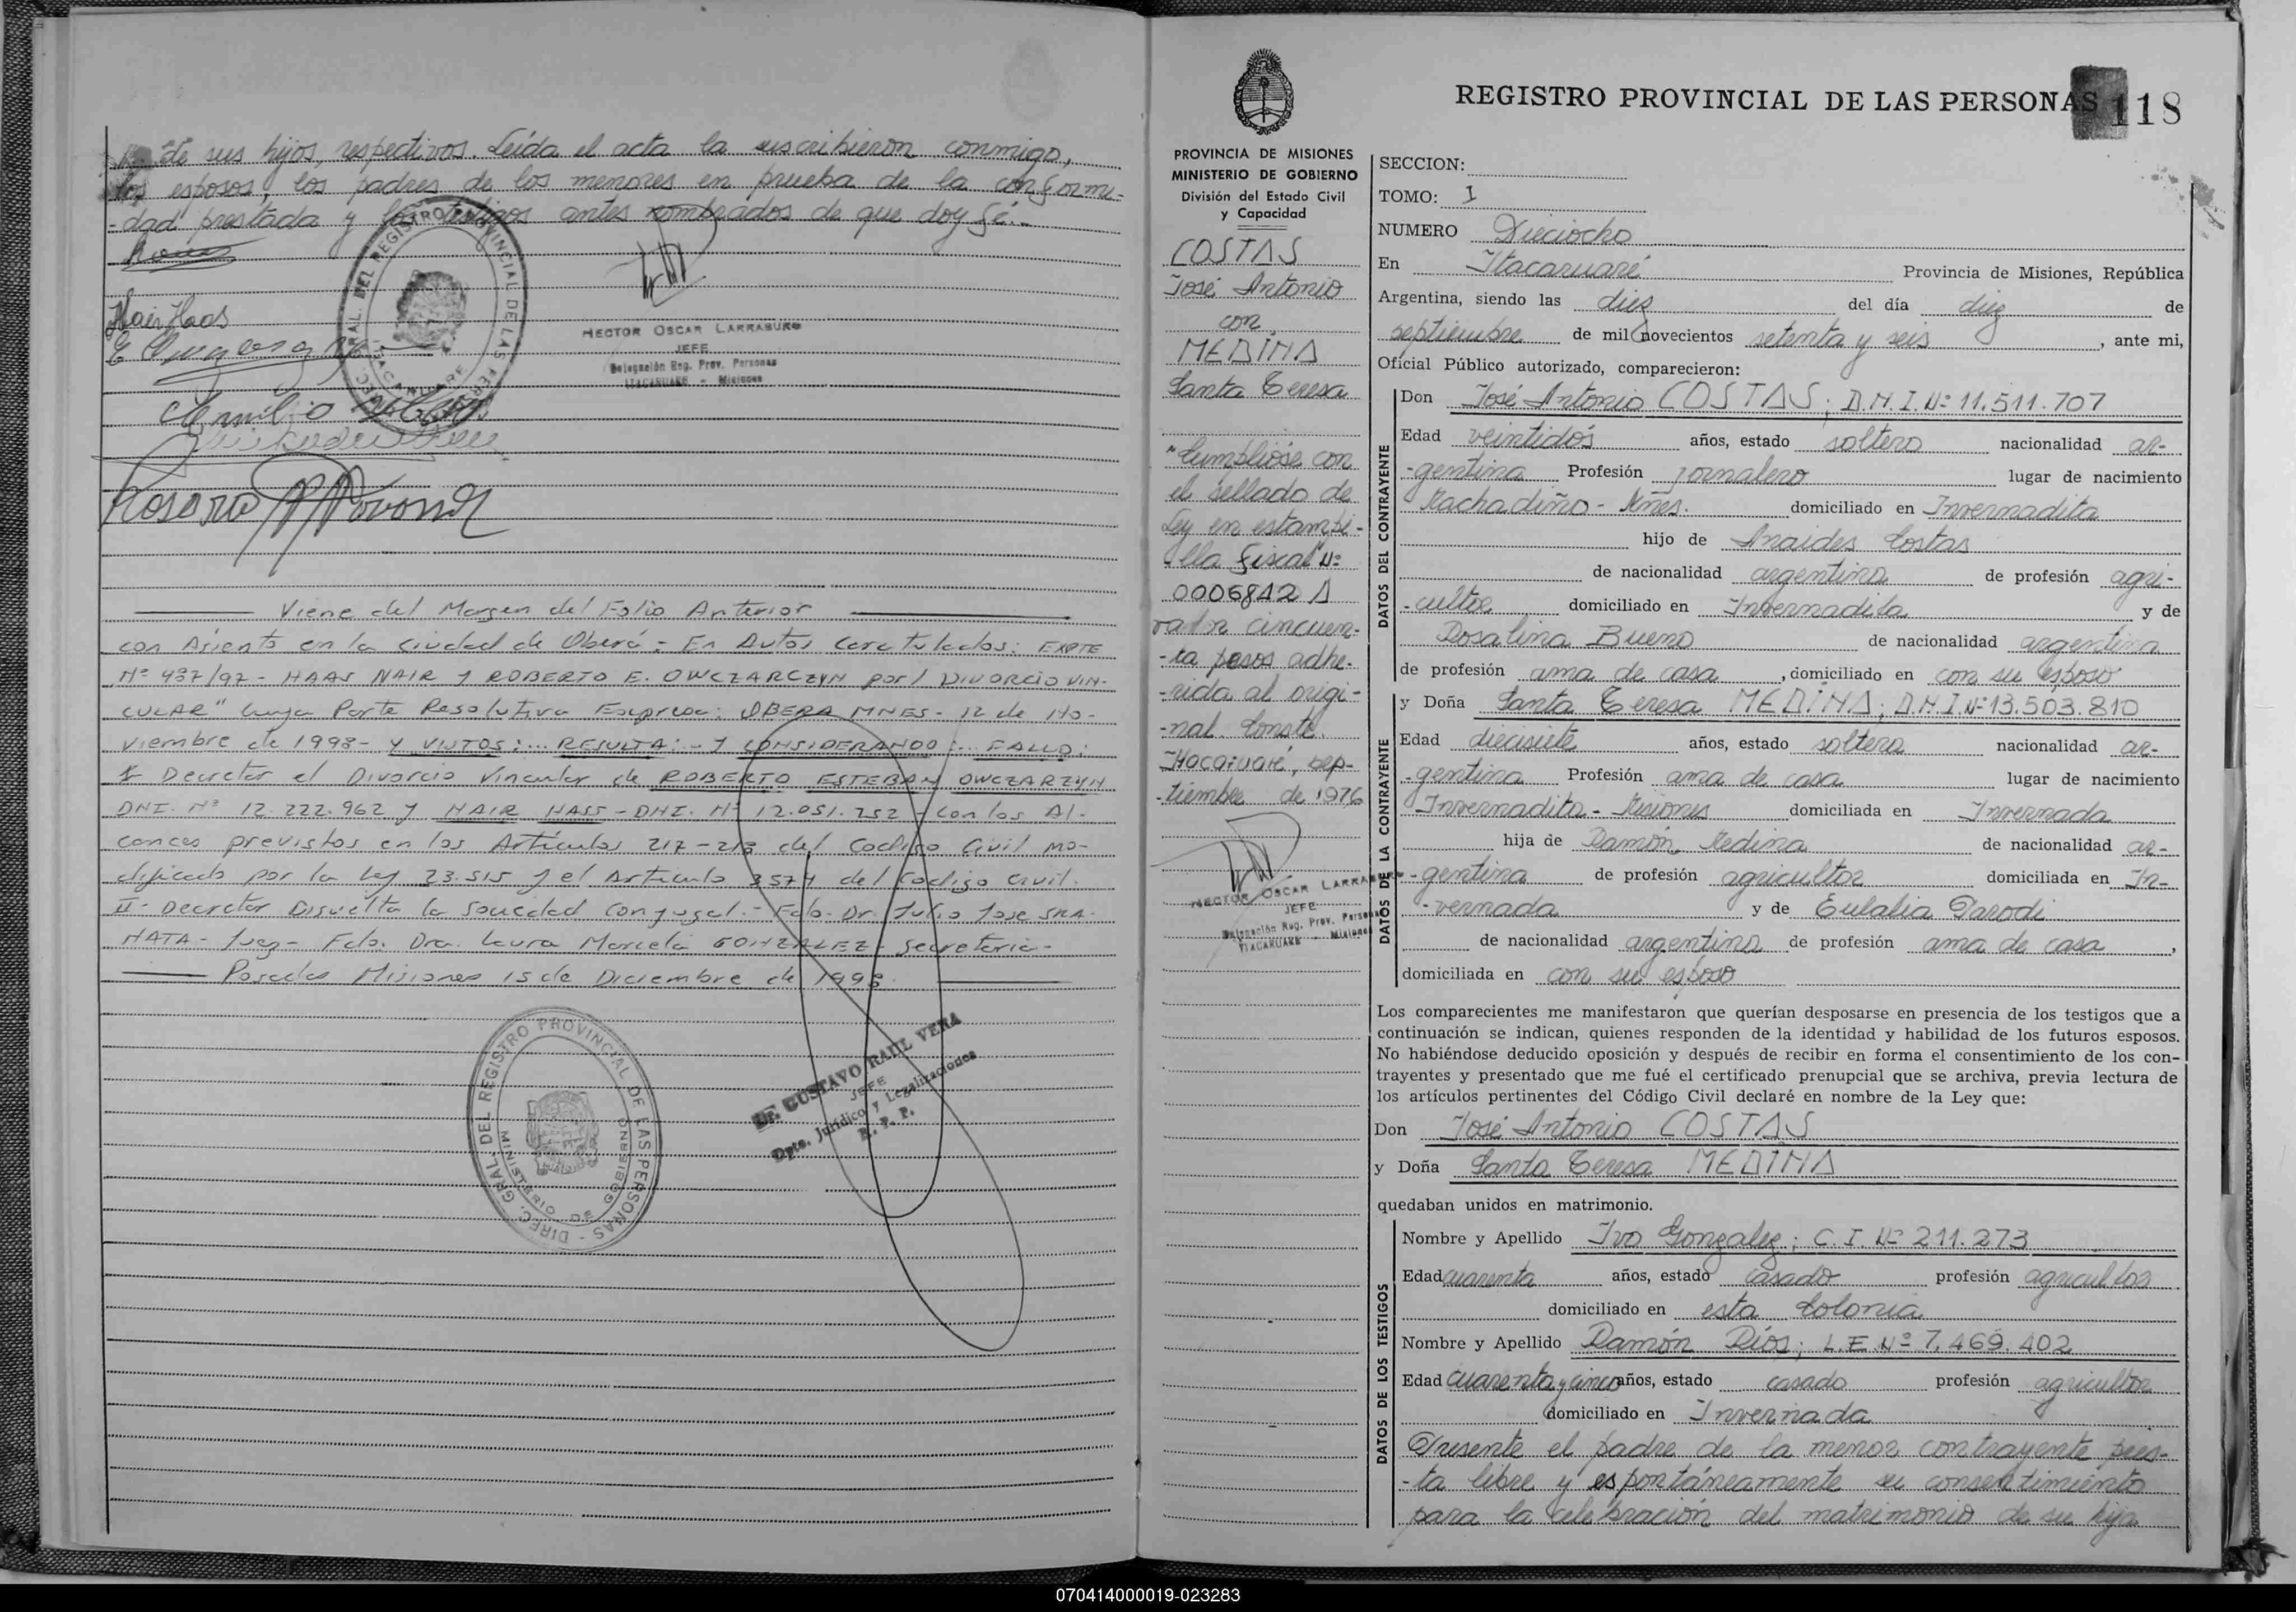 de sus hijos, respectivos. Leída el acta la suscribieron conmigo,
los esposos, los padres de los menores en prueba de la conformi-
-dad prestada y los testigos antes nombrados de que doy fé.-
Nair Haas
HECTOR OSCAR LARRABURE
JEFE
Delegación Reg. Prov. Personas
ITACARUARE - Misiones
Emilio
Viene del Margen del Folio Anterior
con Asiento en la Ciudad de Oberá.- En Autos Caratulados: EXPTE
Nº 437/97 - HAAS NAIR Y ROBERTO E. OWCZARCZYN por/ DIVORCIO VIN-
CULAR" cuya Parte Resolutiva Expresa: OBERA MNES- 12 de No-
viembre de 1998- Y VISTOS:... RESULTA:.- Y CONSIDERANDO:... FALLO:
I- Decretar el Divorcio Vincular de ROBERTO ESTEBAN OWCZARZYN
DNI. Nº 12.222.962 y NAIR HASS - DNI. Nº 12.051.252 - con los Al-
cances previstos en los Artículos 217-218 del Codigo Civil mo-
dificado por la Ley 23.515 y el Artículo 3574 del Codigo Civil.
II- Decretar Disuelta la Sociedad Conyugal.- Fdo. Dr. Julio Jose SRA-
MATA- Juez- Fdo. Dra. Laura Marcela GONZALEZ- Secretaria-
Posadas Misiones 15 de Diciembre de 1998.
DIREC. GRAL. DEL REGISTRO PROVINCIAL DE LAS PERSONAS -
MINISTERIO DE GOBIERNO
Dr. GUSTAVO RAUL VERA
JEFE
Dpto. Jurídico y Legalizaciones
R. P. P.
REGISTRO PROVINCIAL DE LAS PERSONAS
118
PROVINCIA DE MISIONES
MINISTERIO DE GOBIERNO
División del Estado Civil
y Capacidad
COSTAS
José Antonio
con
MEDINA
Santa Teresa
"Cumplióse con
el sellado de
Ley en estampi-
lla fiscal Nº
0006842 A
valor cincuen-
-ta pesos adhe-
-rida al origi-
-nal. Conste.
Itacaruaré, sep-
-tiembre de 1976
HECTOR OSCAR LARRABURE
JEFE
Delegación Reg. Prov. Personas
ITACARUARE - Misiones
SECCION:
TOMO: I
NUMERO Dieciocho
En Itacaruaré Provincia de Misiones, República
Argentina, siendo las diez del día diez de
septiembre de mil novecientos setenta y seis, ante mi,
Oficial Público autorizado, comparecieron:
DATOS DEL CONTRAYENTE
Don José Antonio COSTAS; D.N.I. Nº 11.511.707
Edad veintidós años, estado soltero nacionalidad ar-
-gentina Profesión jornalero lugar de nacimiento
Machadiño - Mnes. domiciliado en Invernadita
hijo de Anaides Costas
de nacionalidad argentina de profesión agri-
-cultor domiciliado en Invernadita y de
Rosalina Bueno de nacionalidad argentina
de profesión ama de casa, domiciliado en con su esposo
DATOS DE LA CONTRAYENTE
y Doña Santa Teresa MEDINA; D.N.I. Nº 13.503.810
Edad diecisiete años, estado soltera nacionalidad ar-
-gentina Profesión ama de casa lugar de nacimiento
Invernadita - Misiones domiciliada en Invernada
hija de Ramón Medina de nacionalidad ar-
-gentina de profesión agricultor domiciliada en In-
-vernada y de Eulalia Parodi
de nacionalidad argentina de profesión ama de casa,
domiciliada en con su esposo
Los comparecientes me manifestaron que querían desposarse en presencia de los testigos que a
continuación se indican, quienes responden de la identidad y habilidad de los futuros esposos.
No habiéndose deducido oposición y después de recibir en forma el consentimiento de los con-
trayentes y presentado que me fué el certificado prenupcial que se archiva, previa lectura de
los artículos pertinentes del Código Civil declaré en nombre de la Ley que:
Don José Antonio COSTAS
y Doña Santa Teresa MEDINA
quedaban unidos en matrimonio.
DATOS DE LOS TESTIGOS
Nombre y Apellido Ivo Gonzalez; C.I. Nº 211.273
Edad cuarenta años, estado casado profesión agricultor
domiciliado en esta Colonia
Nombre y Apellido Ramón Ríos; L.E. Nº 7.469.402
Edad cuarenta y cinco años, estado casado profesión agricultor
domiciliado en Invernada
Presente el padre de la menor contrayente pres-
-ta libre y espontáneamente su consentimiento
para la celebración del matrimonio de su hija
070414000019-023283